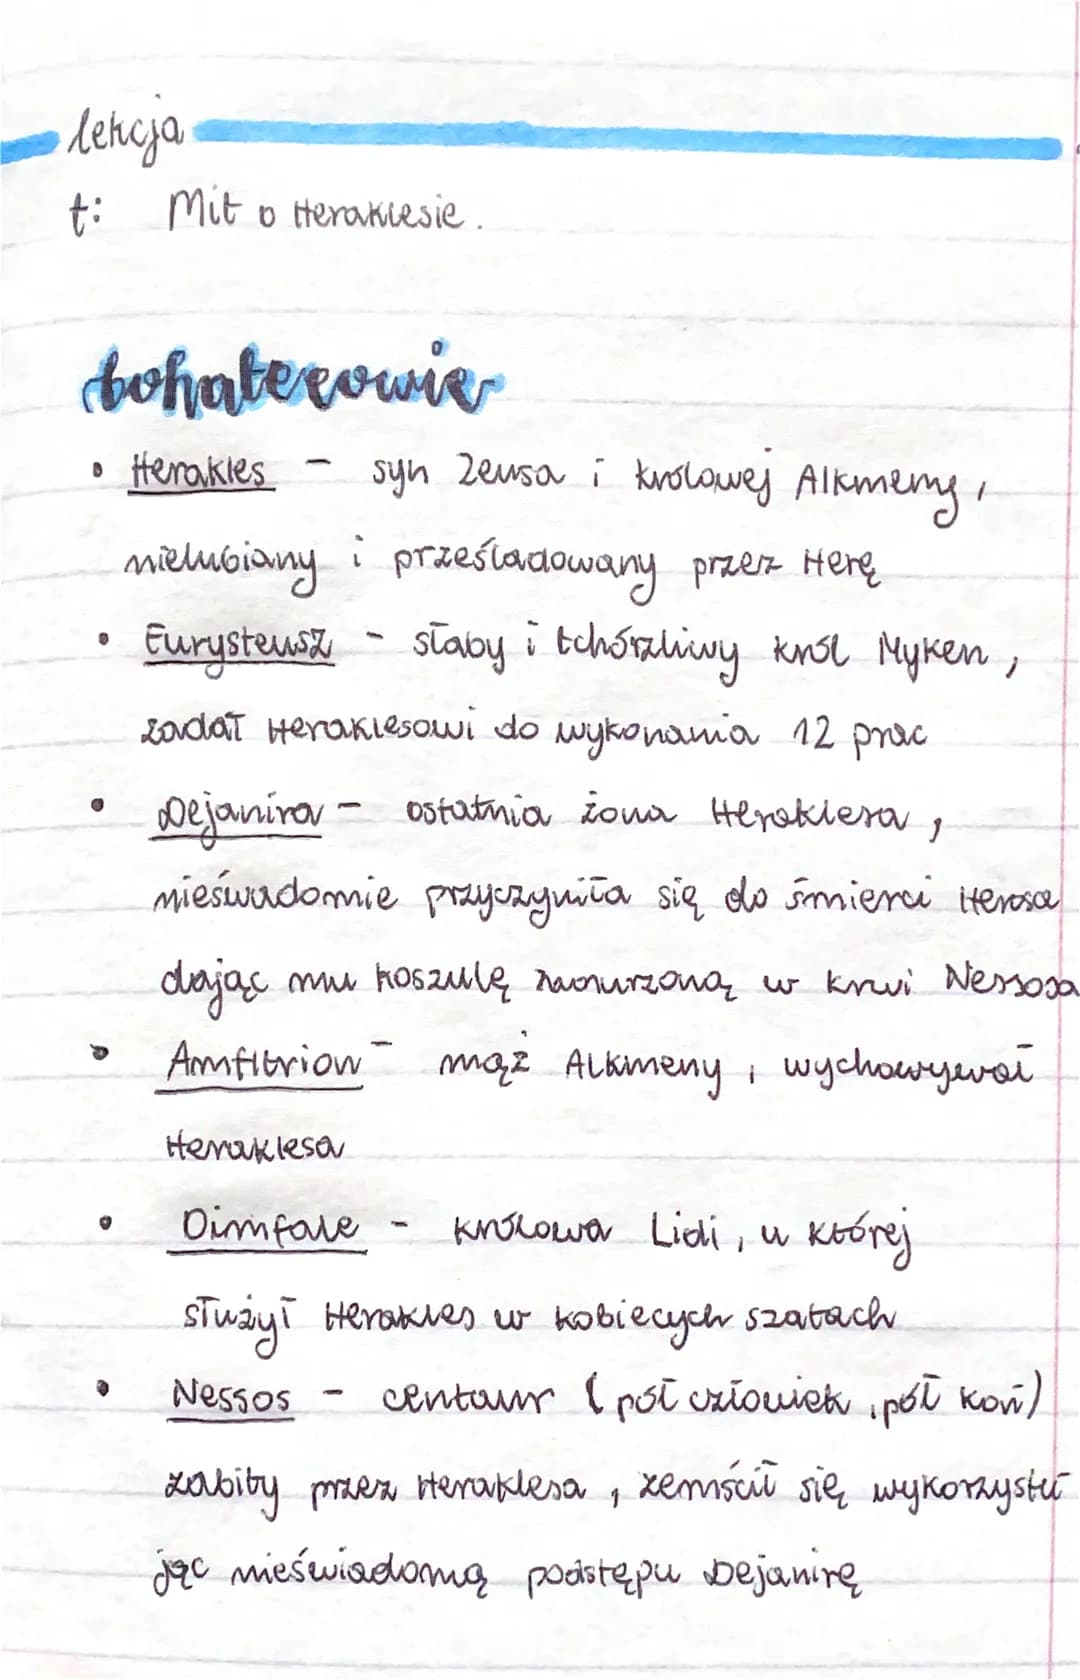 lekcja
t: Mit o Heraklesie.
bohaterowie
• Herakles - syn Zeusa i królowej Alkmeny,
nielubiany i prześladowany przez Herę
• Eurysteusz - słaby i tchórzliwy król Myken,
zadał Heraklesowi do wykonania 12 prac
• Dejanira - ostatnia żona Heraklesa,
nieświadomie przyczyniła się do śmierci Herosa
dając mu koszulę zanurzoną w krwi Nessosa
• Amfitrion - mąż Alkmeny, wychowywał
Heraklesa
• Oimfale - królowa Lidi, u której
służył Herakles w kobiecych szatach
• Nessos - centaur (pół człowiek, pół koń)
zabity przez Heraklesa, zemścił się wykorzystu
jąc nieświadomą podstępu Dejanirę